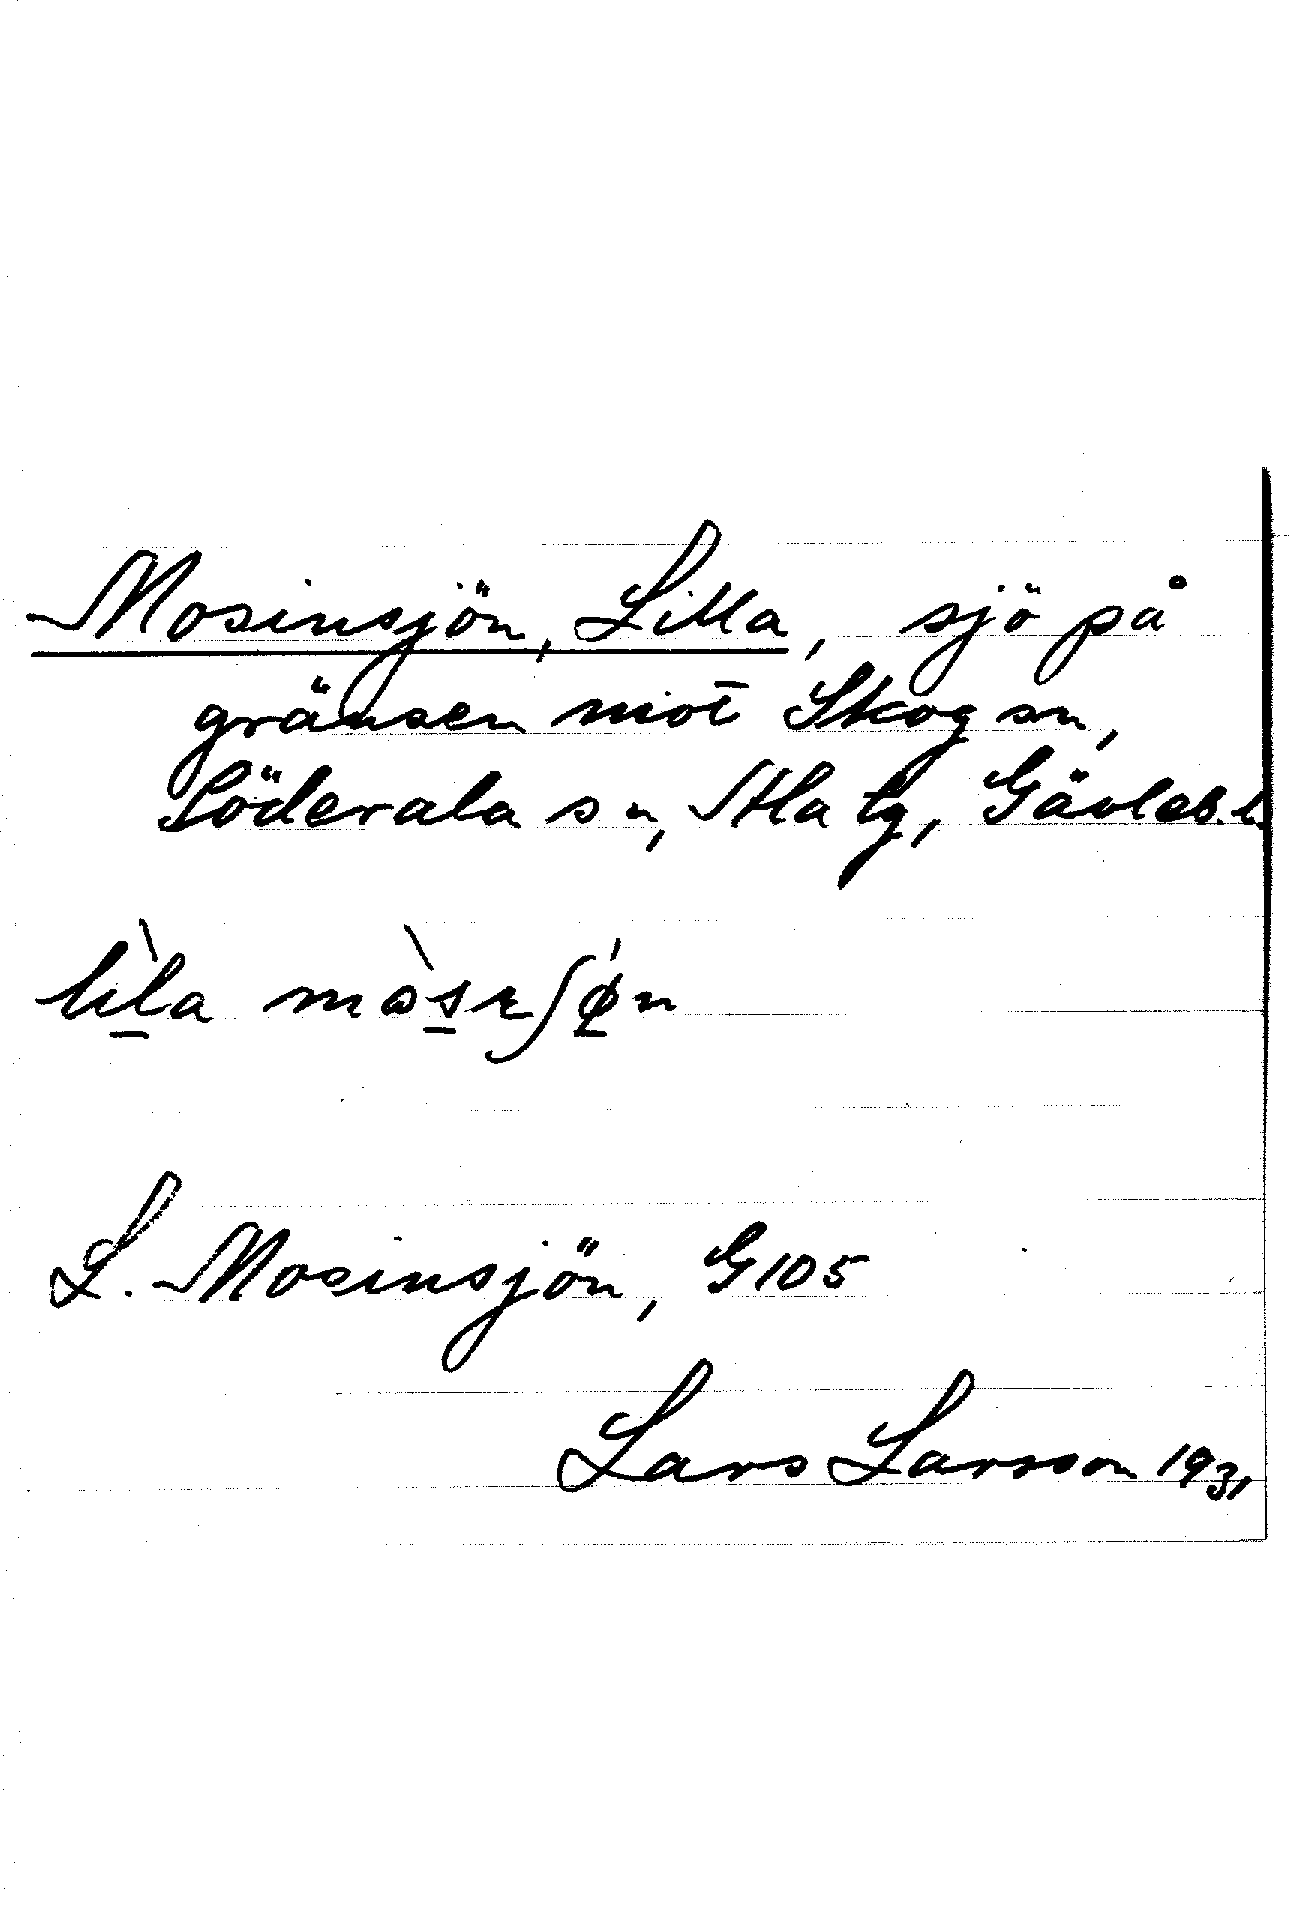 Mosinsjön, Lilla, sjö på
gränsen mot Skog sn,
Söderala sn, Ala tg, Gävleb. l.
lìla
L. Mosinsjön, G105
Lars Larsson 1931